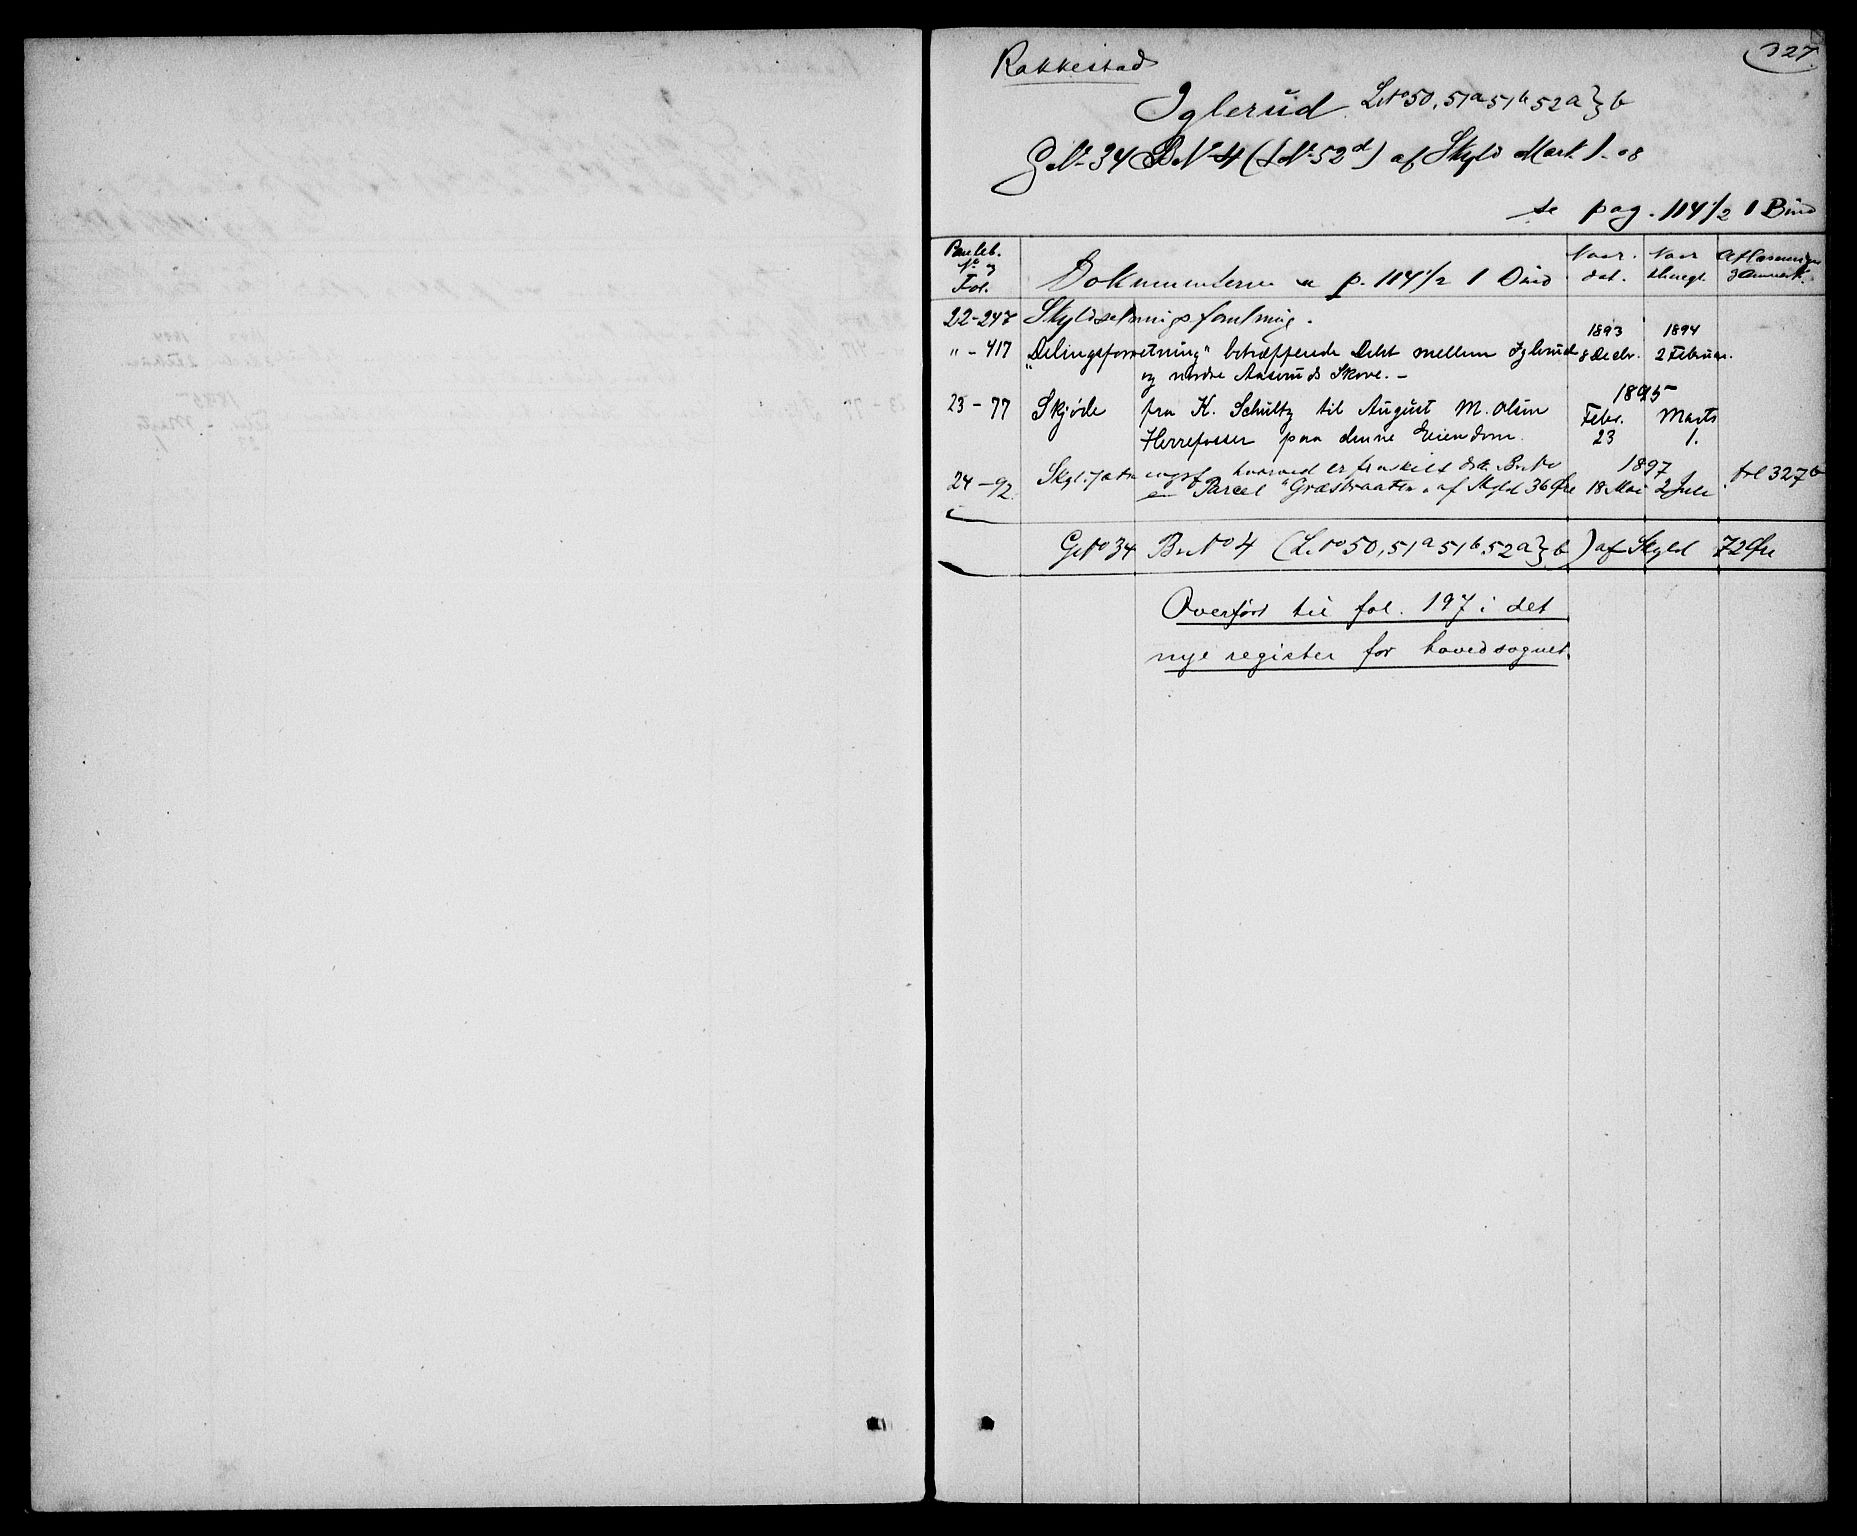 327.
Rakkestad
Iglerud. LNo 50, 51a 51b 52a & b
GNo 34 BNo 4 (LNo 52d) af Skyld Mark 1-08
se pag. 114 1/2 1 Bind
Panteb. No og Fol. Dokumenterne se p. 114 1/2 1 Bind Naar dat. Naar thingl. Aflæsninger & Anmærk.
22-247 Skyldsetningsforretning.
" - 417 "Delingsforretning" betræffende Delet mellem Iglerud 1893 8 Decbr. 1894 2 Februar.
og nordre Aaserud's Skove. -
23 - 77 Skjøde fra K. Schultz til August M. Olsen 1895 Febr. Marts
Herrefosser paa denne Eiendom. 23 1.
24-92 Skyldsætningsf hvorved er fraskilt dette BrNo 1897
en Parcel "Græsbraaten" af Skyld 36 Øre 18 Mai 2 Juli fol 327b
GNo 34 BrNo 4 (L.No 50, 51a 51b 52a & b) af Skyld 72 Øre
Overført til fol. 197 i det
nye register for hovedsognet.